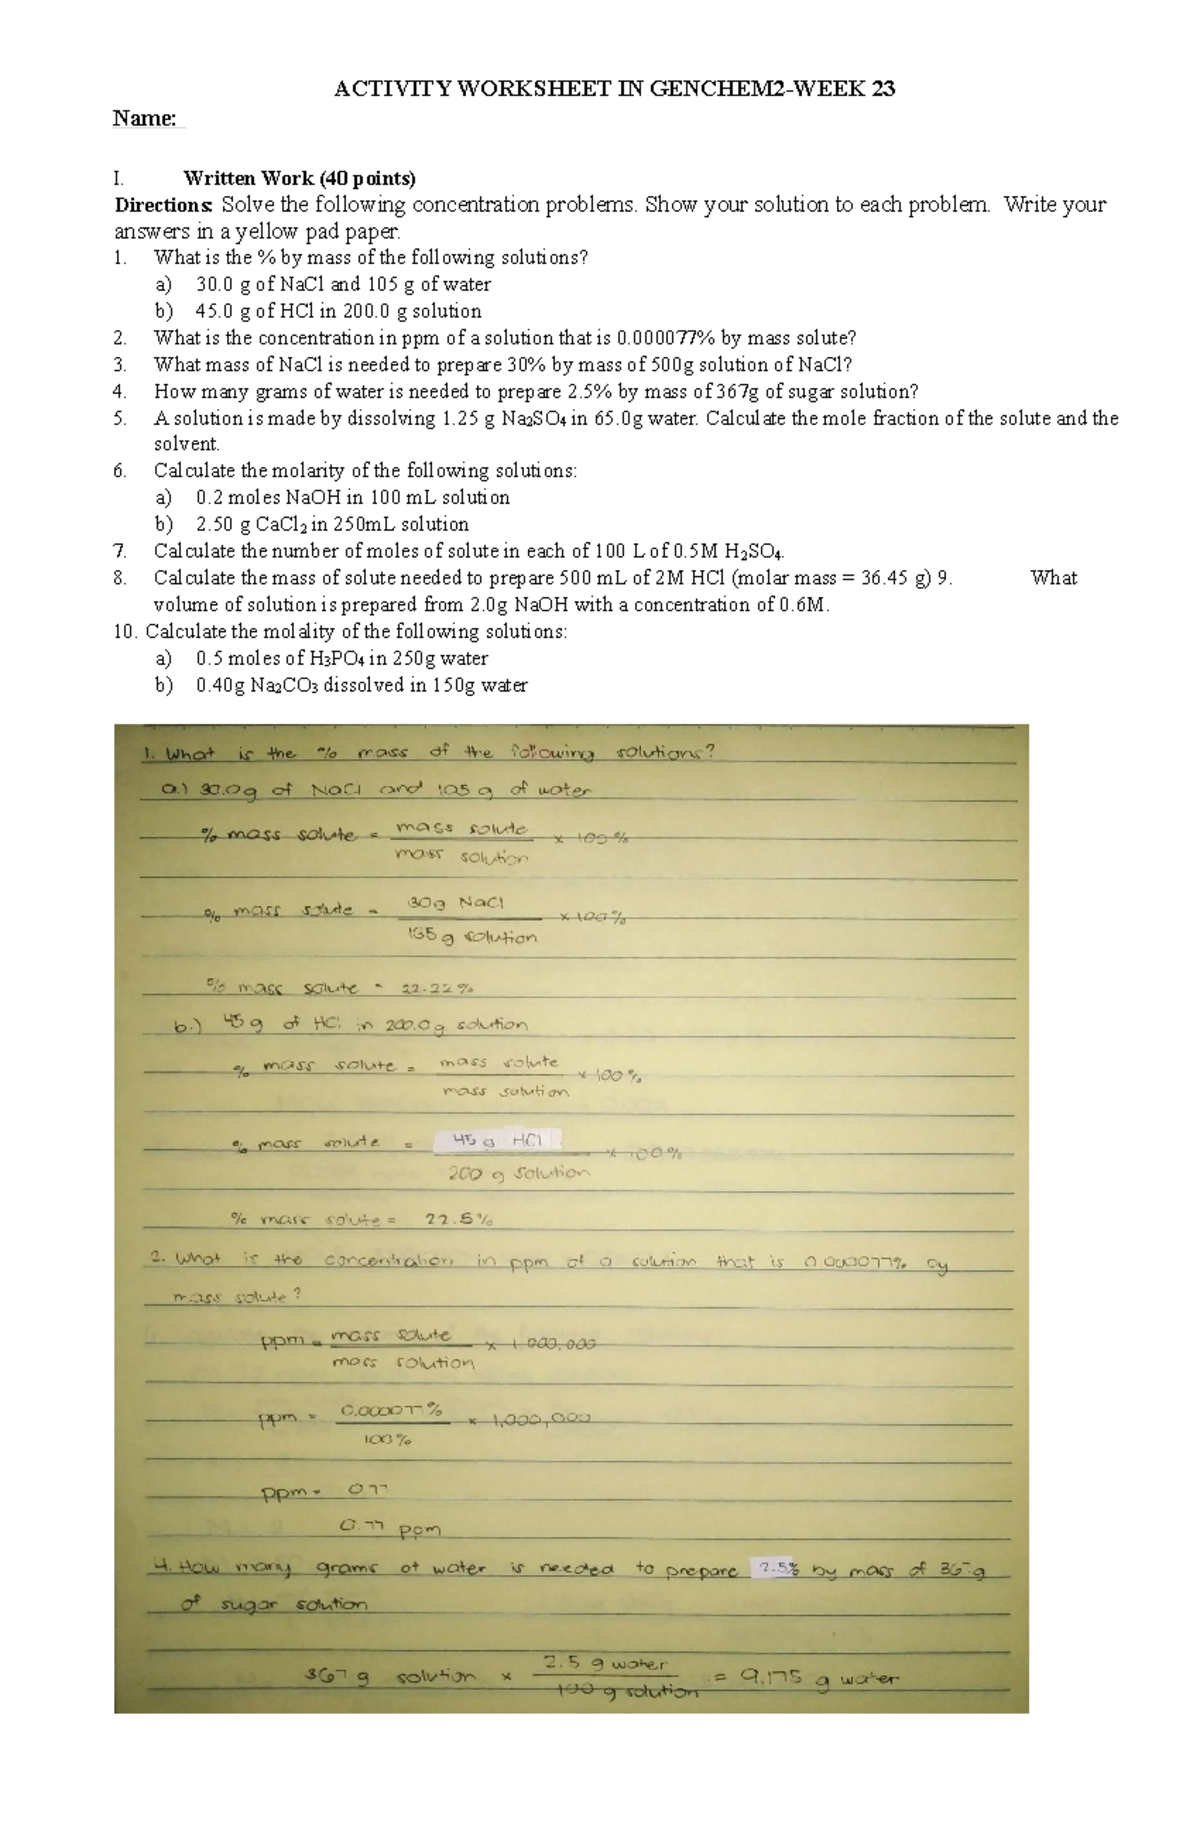 ACTIVITY WORKSHEET IN GENCHEM2-WEEK 23
Name:
I. Written Work (40 points)
Directions: Solve the following concentration problems. Show your solution to each problem. Write your
answers in a yellow pad paper.
1. What is the % by mass of the following solutions?
a) 30.0 g of NaCl and 105 g of water
b) 45.0 g of HCl in 200.0 g solution
2. What is the concentration in ppm of a solution that is 0.000077% by mass solute?
3. What mass of NaCl is needed to prepare 30% by mass of 500g solution of NaCl?
4. How many grams of water is needed to prepare 2.5% by mass of 367g of sugar solution?
5. A solution is made by dissolving 1.25 g Na₂SO₄ in 65.0g water. Calculate the mole fraction of the solute and the
solvent.
6. Calculate the molarity of the following solutions:
a) 0.2 moles NaOH in 100 mL solution
b) 2.50 g CaCl₂ in 250mL solution
7. Calculate the number of moles of solute in each of 100 L of 0.5M H₂SO₄.
8. Calculate the mass of solute needed to prepare 500 mL of 2M HCl (molar mass = 36.45 g) 9. What
volume of solution is prepared from 2.0g NaOH with a concentration of 0.6M.
10. Calculate the molality of the following solutions:
a) 0.5 moles of H₃PO₄ in 250g water
b) 0.40g Na₂CO₃ dissolved in 150g water
1. What is the % mass of the following solutions?
a.) 30.0g of NaCl and 105 g of water
% mass solute = mass solute × 100%
mass solution
% mass solute = 30g NaCl × 100%
135 g solution
% mass solute = 22.22%
b.) 45 g of HCl in 200.0g solution
% mass solute = mass solute × 100%
mass solution
% mass solute = 45 g HCl × 100%
200 g solution
% mass solute = 22.5%
2. What is the concentration in ppm of a solution that is 0.000077% by
mass solute?
ppm = mass solute × 1,000,000
mass solution
ppm = 0.000077% × 1,000,000
100%
ppm = 0.77
0.77 ppm
4. How many grams of water is needed to prepare 2.5% by mass of 367g
of sugar solution
367 g solution × 2.5 g water = 9.175 g water
100 g solution